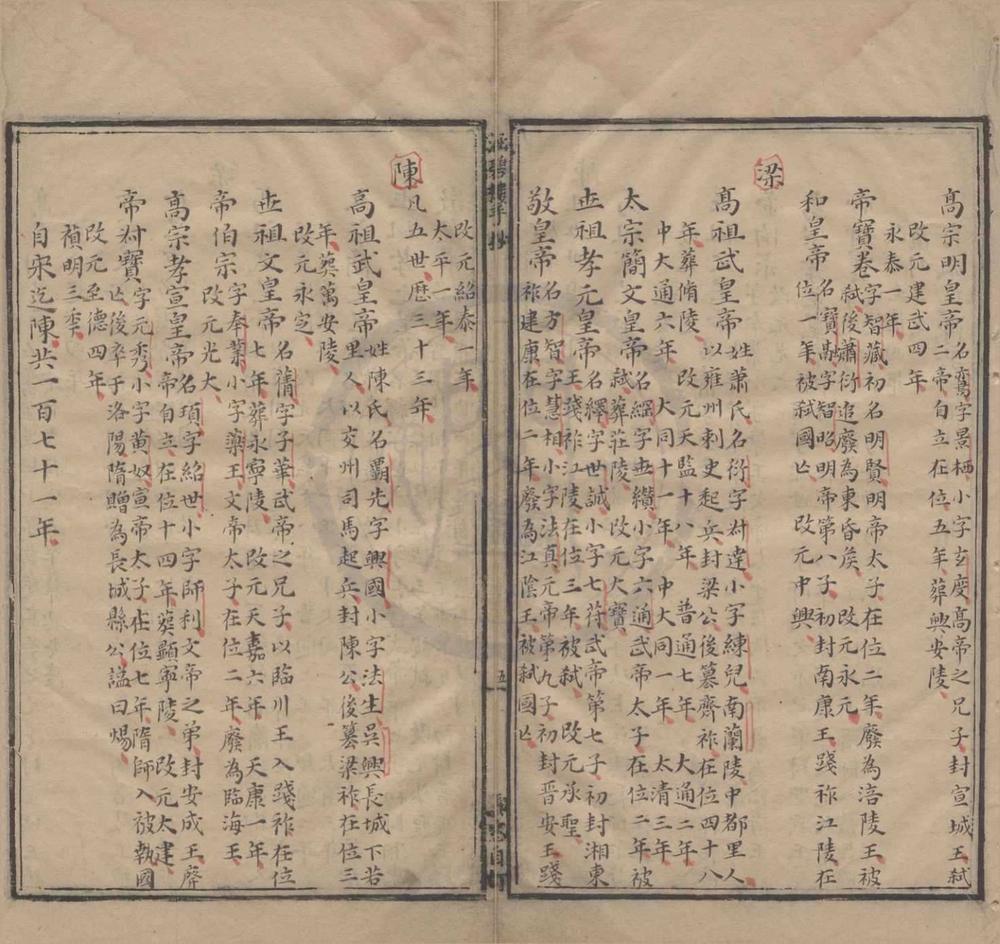 高宗明皇帝名鸞字景栖小字玄度高帝之兄子封宣城王弑
二帝自立在位五年葬興安陵
改元建武四年
永泰一年
帝寶卷字智藏初名明賢明帝太子在位二年廢為涪陵王被
弑後蕭衍追廢為東昏侯 改元永元
和皇帝名寶嵩字智昭明帝第八子初封南康王踐祚江陵在
位一年被弑國亡 改元中興
梁
高祖武皇帝姓蕭氏名衍字叔達小字練兒南蘭陵中都里人
以雍州刺史起兵封梁公後篡齊祚在位四十八
年葬脩陵 改元天監十八年 普通七年 大通二年
中大通六年 大同十一年 中大同一年 太清三年
太宗簡文皇帝名綱字世纘小字六通武帝太子在位二年被
弑葬莊陵 改元大寶
世祖孝元皇帝名繹字世誠小字七符武帝第七子初封湘東
王踐祚江陵在位三年被弑 改元承聖
敬皇帝名方智字慧相小字法真元帝第九子初封晋安王踐
祚建康在位二年廢為江陰王被弑國亡
改元紹泰一年
太平一年
陳凡五世歷三十三年
高祖武皇帝姓陳氏名覇先字興國小字法生吳興長城下若
里人以交州司馬起兵封陳公後篡梁祚在位三
年葬萬安陵
改元永定
世祖文皇帝名蒨字子華武帝之兄子以臨川王入踐祚在位
七年葬永寧陵 改元天嘉六年 天康一年
帝伯宗字奉業小字藥王文帝太子在位二年廢為臨海王
改元光大
高宗孝宣皇帝名頊字紹世小字師利文帝之弟封安成王廢
帝自立在位十四年葬顯寧陵 改元太建
帝叔寶字元秀小字黄奴宣帝太子在位七年隋師入被執國
亡後卒于洛陽隋贈為長城縣公謚曰煬
改元至德四年
禎明三季
自宋迄陳共一百七十一年
五